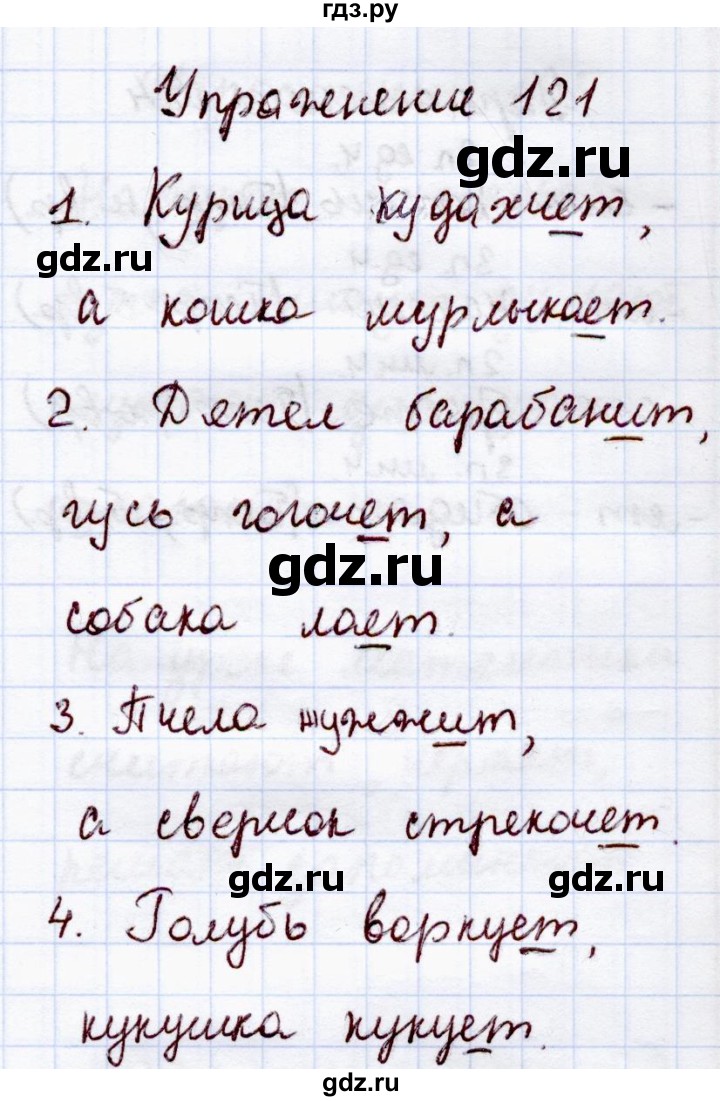 гдз.ру
Упражнение 121
gdz.ru
1. Курица кудахчет,
gdz.ru
а кошка мурлыкает.
gdz.ru
2. Дятел барабанит,
гусь гогочет, а
gdz.ru
собака лает.
3. Пчела жужжит,
gdz.ru
а сверчок стрекочет.
gdz.ru gdz.ru
4. Голубь воркует,
кукушка кукует.
gdz.ru
gdz.ru